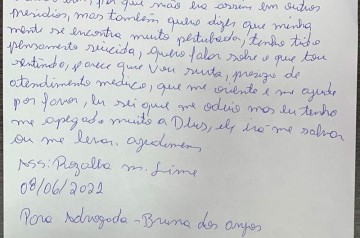 por que não era assim em outros
presídios, mas também quero dizer que minha
mente se encontra muito pertubada, tenho tido
pensamento suicida, quero falar sobre o que tou
sentindo, parece que vou surta, preciso de
atendimento médico, que me oriente e me ajude
por favor, eu sei que me odeio mas eu tenho
me apegado muito a Deus, ele irá me salvar
ou me levar. agradeço
Ass: Rozalba m. Lime
08/06/2021
Para Advogada - Bruna dos anjos